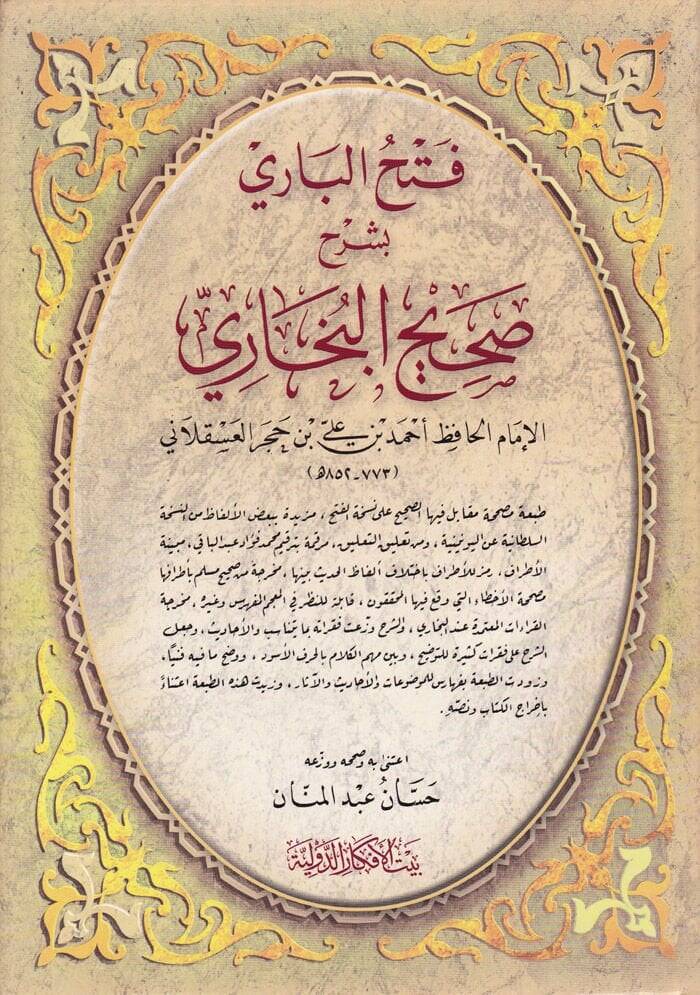 فَتْحُ البَارِيْ
بشرح
صَحِيْحِ البُخَارِيِّ
الإمَام الحَافِظ أحْمَد بْن عَلِيّ بْن حَجَر العَسْقَلَاني
(٧٧٣-٨٥٢هـ)
طبعة مصححة مقابل فيها الصحيح على نسخة الفتح، مزيدة ببعض الألفاظ من النسخة
السلطانية عن اليونينية، ومن تغليق التعليق، مرقمة بترقيم محمد فؤاد عبد الباقي، مبينة
الأطراف، رمز للأطراف باختلاف ألفاظ الحديث بينها، مخرجة من صحيح مسلم بأطرافها
مصححة الأخطاء التي وقع فيها المحققون، قابلة للنظر في المعجم المفهرس وغيره، مخرجة
القراءات المعتمدة عند البخاري، والشرح وزّعت فقراته بما يتناسب والأحاديث، وجعل
الشرح على فقرات كثيرة للتوضيح، وبين مهم الكلام بالحرف الأسود، ووضح ما فيه فنياً،
وزودت الطبعة بفهارس للموضوعات والأحاديث والآثار، وزيدت هذه الطبعة اعتناءً
بإخراج الكتاب ونصّه.
اعتنى به وصححه ووزعه
حَسَّانُ عَبْد المنَّان
بيْت الأفكار الدَّوليَّة